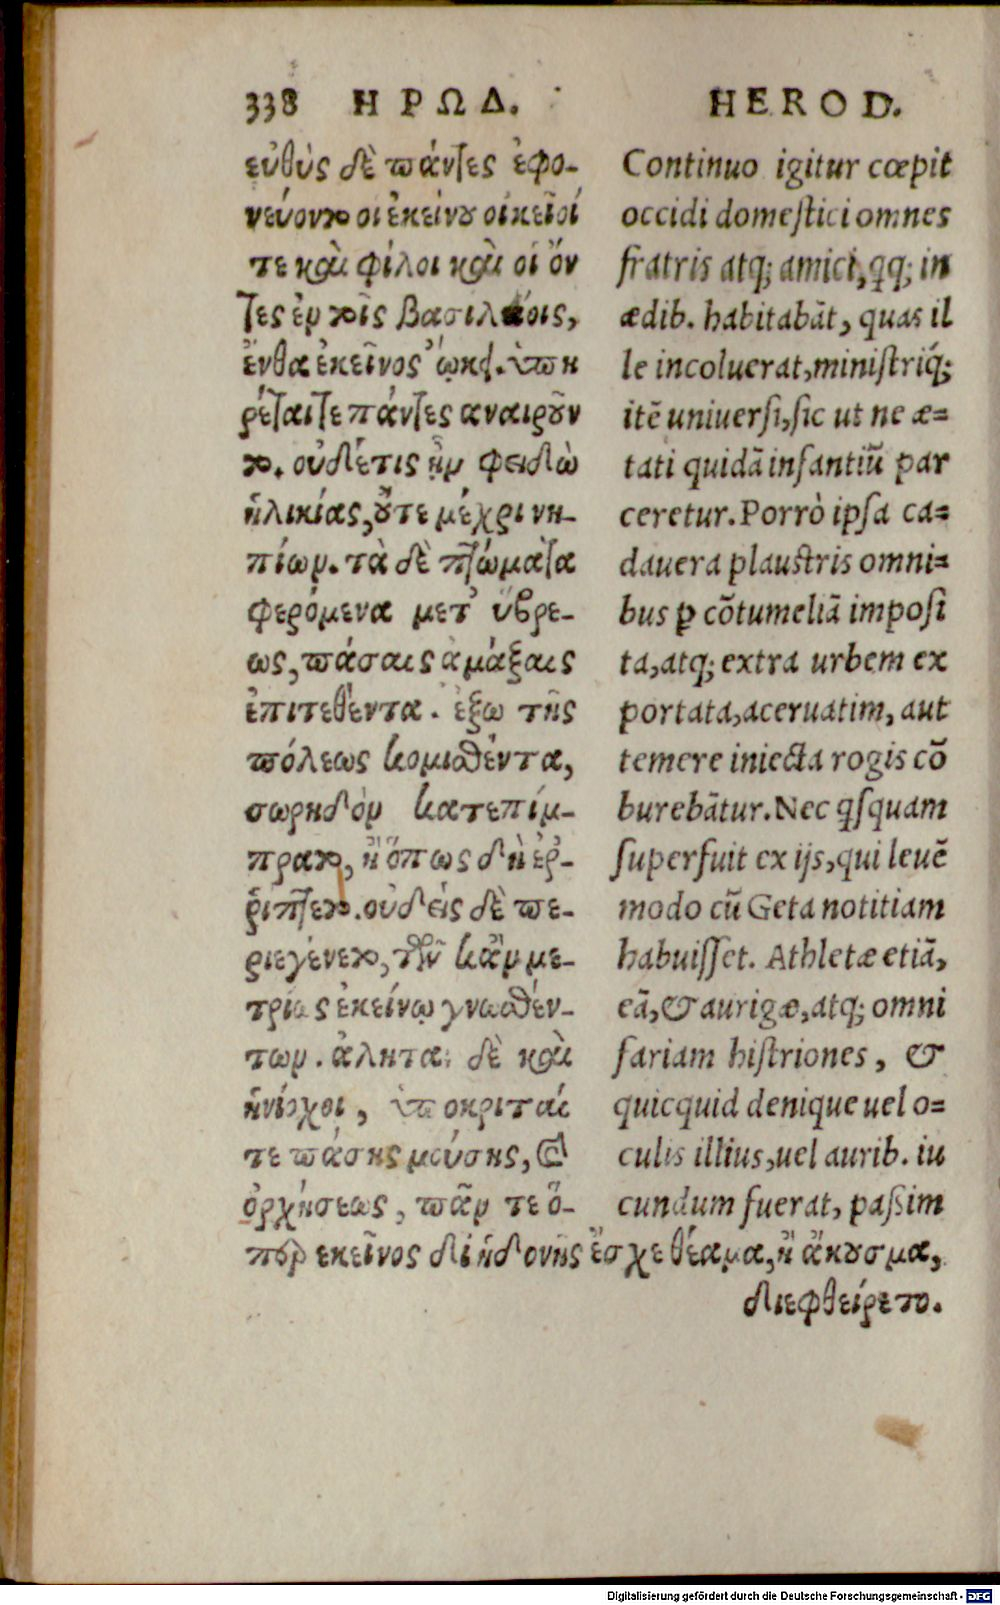 338 ΗΡΩΔ.
εὐθὺς δὲ πάντες ἐφο-
νεύοντο οἱ ἐκείνου οἰκεῖοί
τε καὶ φίλοι καὶ οἱ ὄν
τες ἐν τοῖς βασιλείοις,
ἔνθα ἐκεῖνος ᾤκει. ὑπη
ρέταιτε πάντες αναιροῦν
το. οὐδέτις ἦν φειδὼ
ἡλικίας, οὔτε μέχρι νη-
πίων. τὰ δὲ πτώματα
φερόμενα μετ' ὕβρε-
ως, πάσαις ἁμάξαις
ἐπιτεθέντα. ἔξω τῆς
πόλεως κομισθέντα,
σωρηδὸν κατεπίμ-
πρατο, ἢ ὅπως δὴ ἐῤ-
ῥίπτετο. οὐδείς δὲ πε-
ριεγένετο, τῶν κἂν με-
τρίως ἐκείνῳ γνωσθέν-
των. ἀληταὶ δὲ καὶ
ἡνίοχοι, ὑποκριταί
τε πάσης μούσης, καὶ
ὀρχήσεως, πᾶν τε ὅ-
περ εκεῖνος δι ἡδονῆς ἔσχε θέαμα, ἢ ἄκουσμα,
διεφθείρετο.
HEROD.
Continuo igitur cœpit
occidi domestici omnes
fratris atq; amici, qq; in
ædib. habitabāt, quas il
le incoluerat, ministriq́;
itē uniuersi, sic ut ne æ=
tati quidā infantiū par
ceretur. Porrò ipsa ca=
dauera plaustris omni=
bus ꝑ cōtumeliā imposi
ta, atq; extra urbem ex
portata, aceruatim, aut
temere iniecta rogis cō
burebātur. Nec qsquam
superfuit ex ijs, qui leuē
modo cū Geta notitiam
habuisset. Athletæ etiā,
eā, & aurigæ, atq; omni
fariam histriones, &
quicquid denique uel o=
culis illius, uel aurib. iu
cundum fuerat, passim
Digitalisierung gefördert durch die Deutsche Forschungsgemeinschaft - DFG